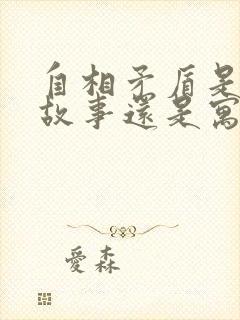 自相矛盾是
故事還是寓
愛森